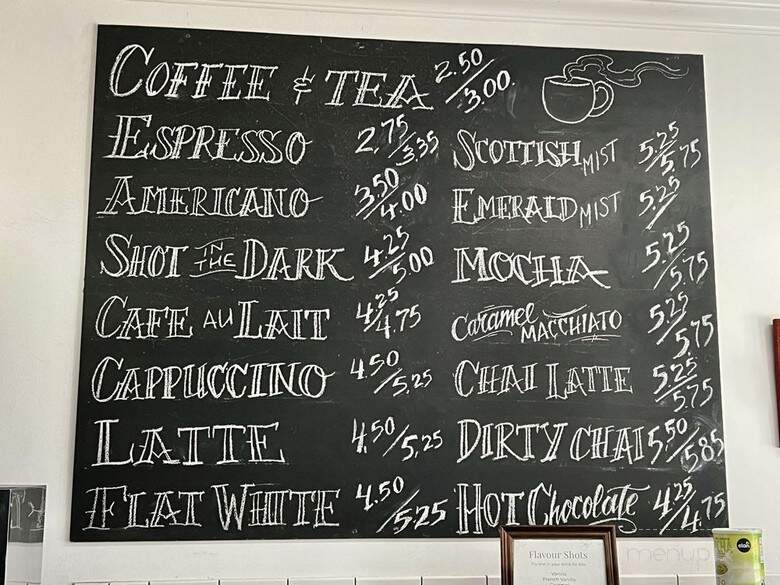 COFFEE & TEA 2.50/3.00
ESPRESSO 2.75/3.35
AMERICANO 3.50/4.00
SHOT IN THE DARK 4.25/5.00
CAFE AU LAIT 4.25/4.75
CAPPUCCINO 4.50/5.25
LATTE 4.50/5.25
FLAT WHITE 4.50/5.25
SCOTTISH MIST 5.25/5.75
EMERALD MIST 5.25
MOCHA 5.25/5.75
Caramel MACCHIATO 5.25/5.75
CHAI LATTE 5.25/5.75
DIRTY CHAI 5.50/5.85
HOT Chocolate 4.25/4.75
Flavour Shots
Vanilla
French Vanilla
menup
elan